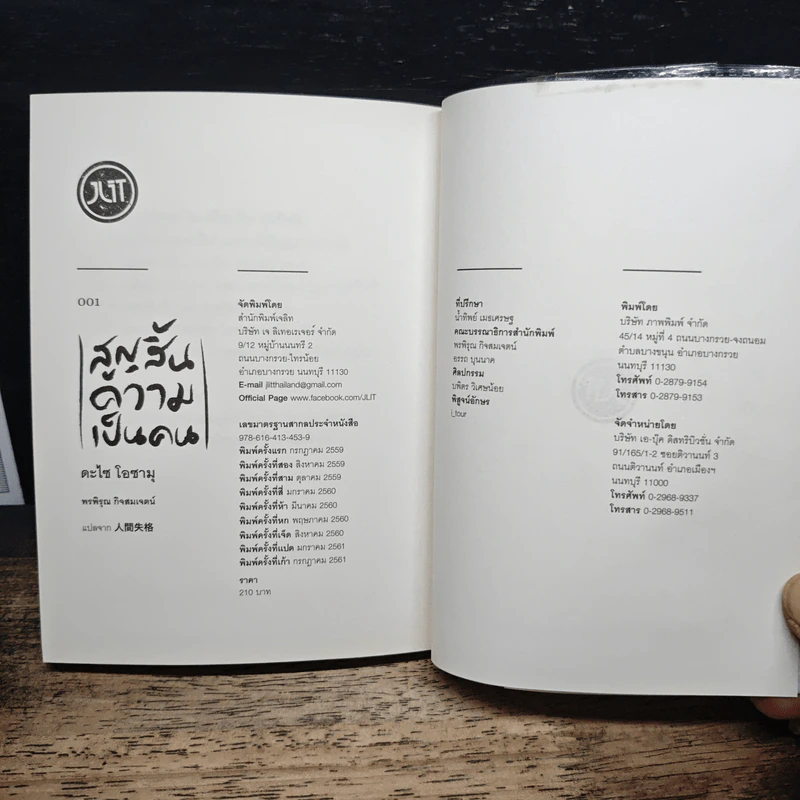 JLIT
001
สูญสิ้น
ความ
เป็นคน
ดะไซ โอซามุ
พรพิรุณ กิจสมเจตน์
แปลจาก 人間失格
จัดพิมพ์โดย
สำนักพิมพ์เจลิท
บริษัท เจ ลิเทอเรเจอร์ จำกัด
9/12 หมู่บ้านนนทรี 2
ถนนบางกรวย-ไทรน้อย
อำเภอบางกรวย นนทบุรี 11130
E-mail jlitthailand@gmail.com
Official Page www.facebook.com/JLIT
เลขมาตรฐานสากลประจำหนังสือ
978-616-413-453-9
พิมพ์ครั้งแรก กรกฎาคม 2559
พิมพ์ครั้งที่สอง สิงหาคม 2559
พิมพ์ครั้งที่สาม ตุลาคม 2559
พิมพ์ครั้งที่สี่ มกราคม 2560
พิมพ์ครั้งที่ห้า มีนาคม 2560
พิมพ์ครั้งที่หก พฤษภาคม 2560
พิมพ์ครั้งที่เจ็ด สิงหาคม 2560
พิมพ์ครั้งที่แปด มกราคม 2561
พิมพ์ครั้งที่เก้า กรกฎาคม 2561
ราคา
210 บาท
ที่ปรึกษา
น้ำทิพย์ เมธเศรษฐ
คณะบรรณาธิการสำนักพิมพ์
พรพิรุณ กิจสมเจตน์
อรรถ บุนนาค
ศิลปกรรม
บพิตร วิเศษน้อย
พิสูจน์อักษร
i_tour
พิมพ์โดย
บริษัท ภาพพิมพ์ จำกัด
45/14 หมู่ที่ 4 ถนนบางกรวย-จงถนอม
ตำบลบางขนุน อำเภอบางกรวย
นนทบุรี 11130
โทรศัพท์ 0-2879-9154
โทรสาร 0-2879-9153
จัดจำหน่ายโดย
บริษัท เอ-บุ๊ค ดิสทริบิวชั่น จำกัด
91/165/1-2 ซอยติวานนท์ 3
ถนนติวานนท์ อำเภอเมืองฯ
นนทบุรี 11000
โทรศัพท์ 0-2968-9337
โทรสาร 0-2968-9511